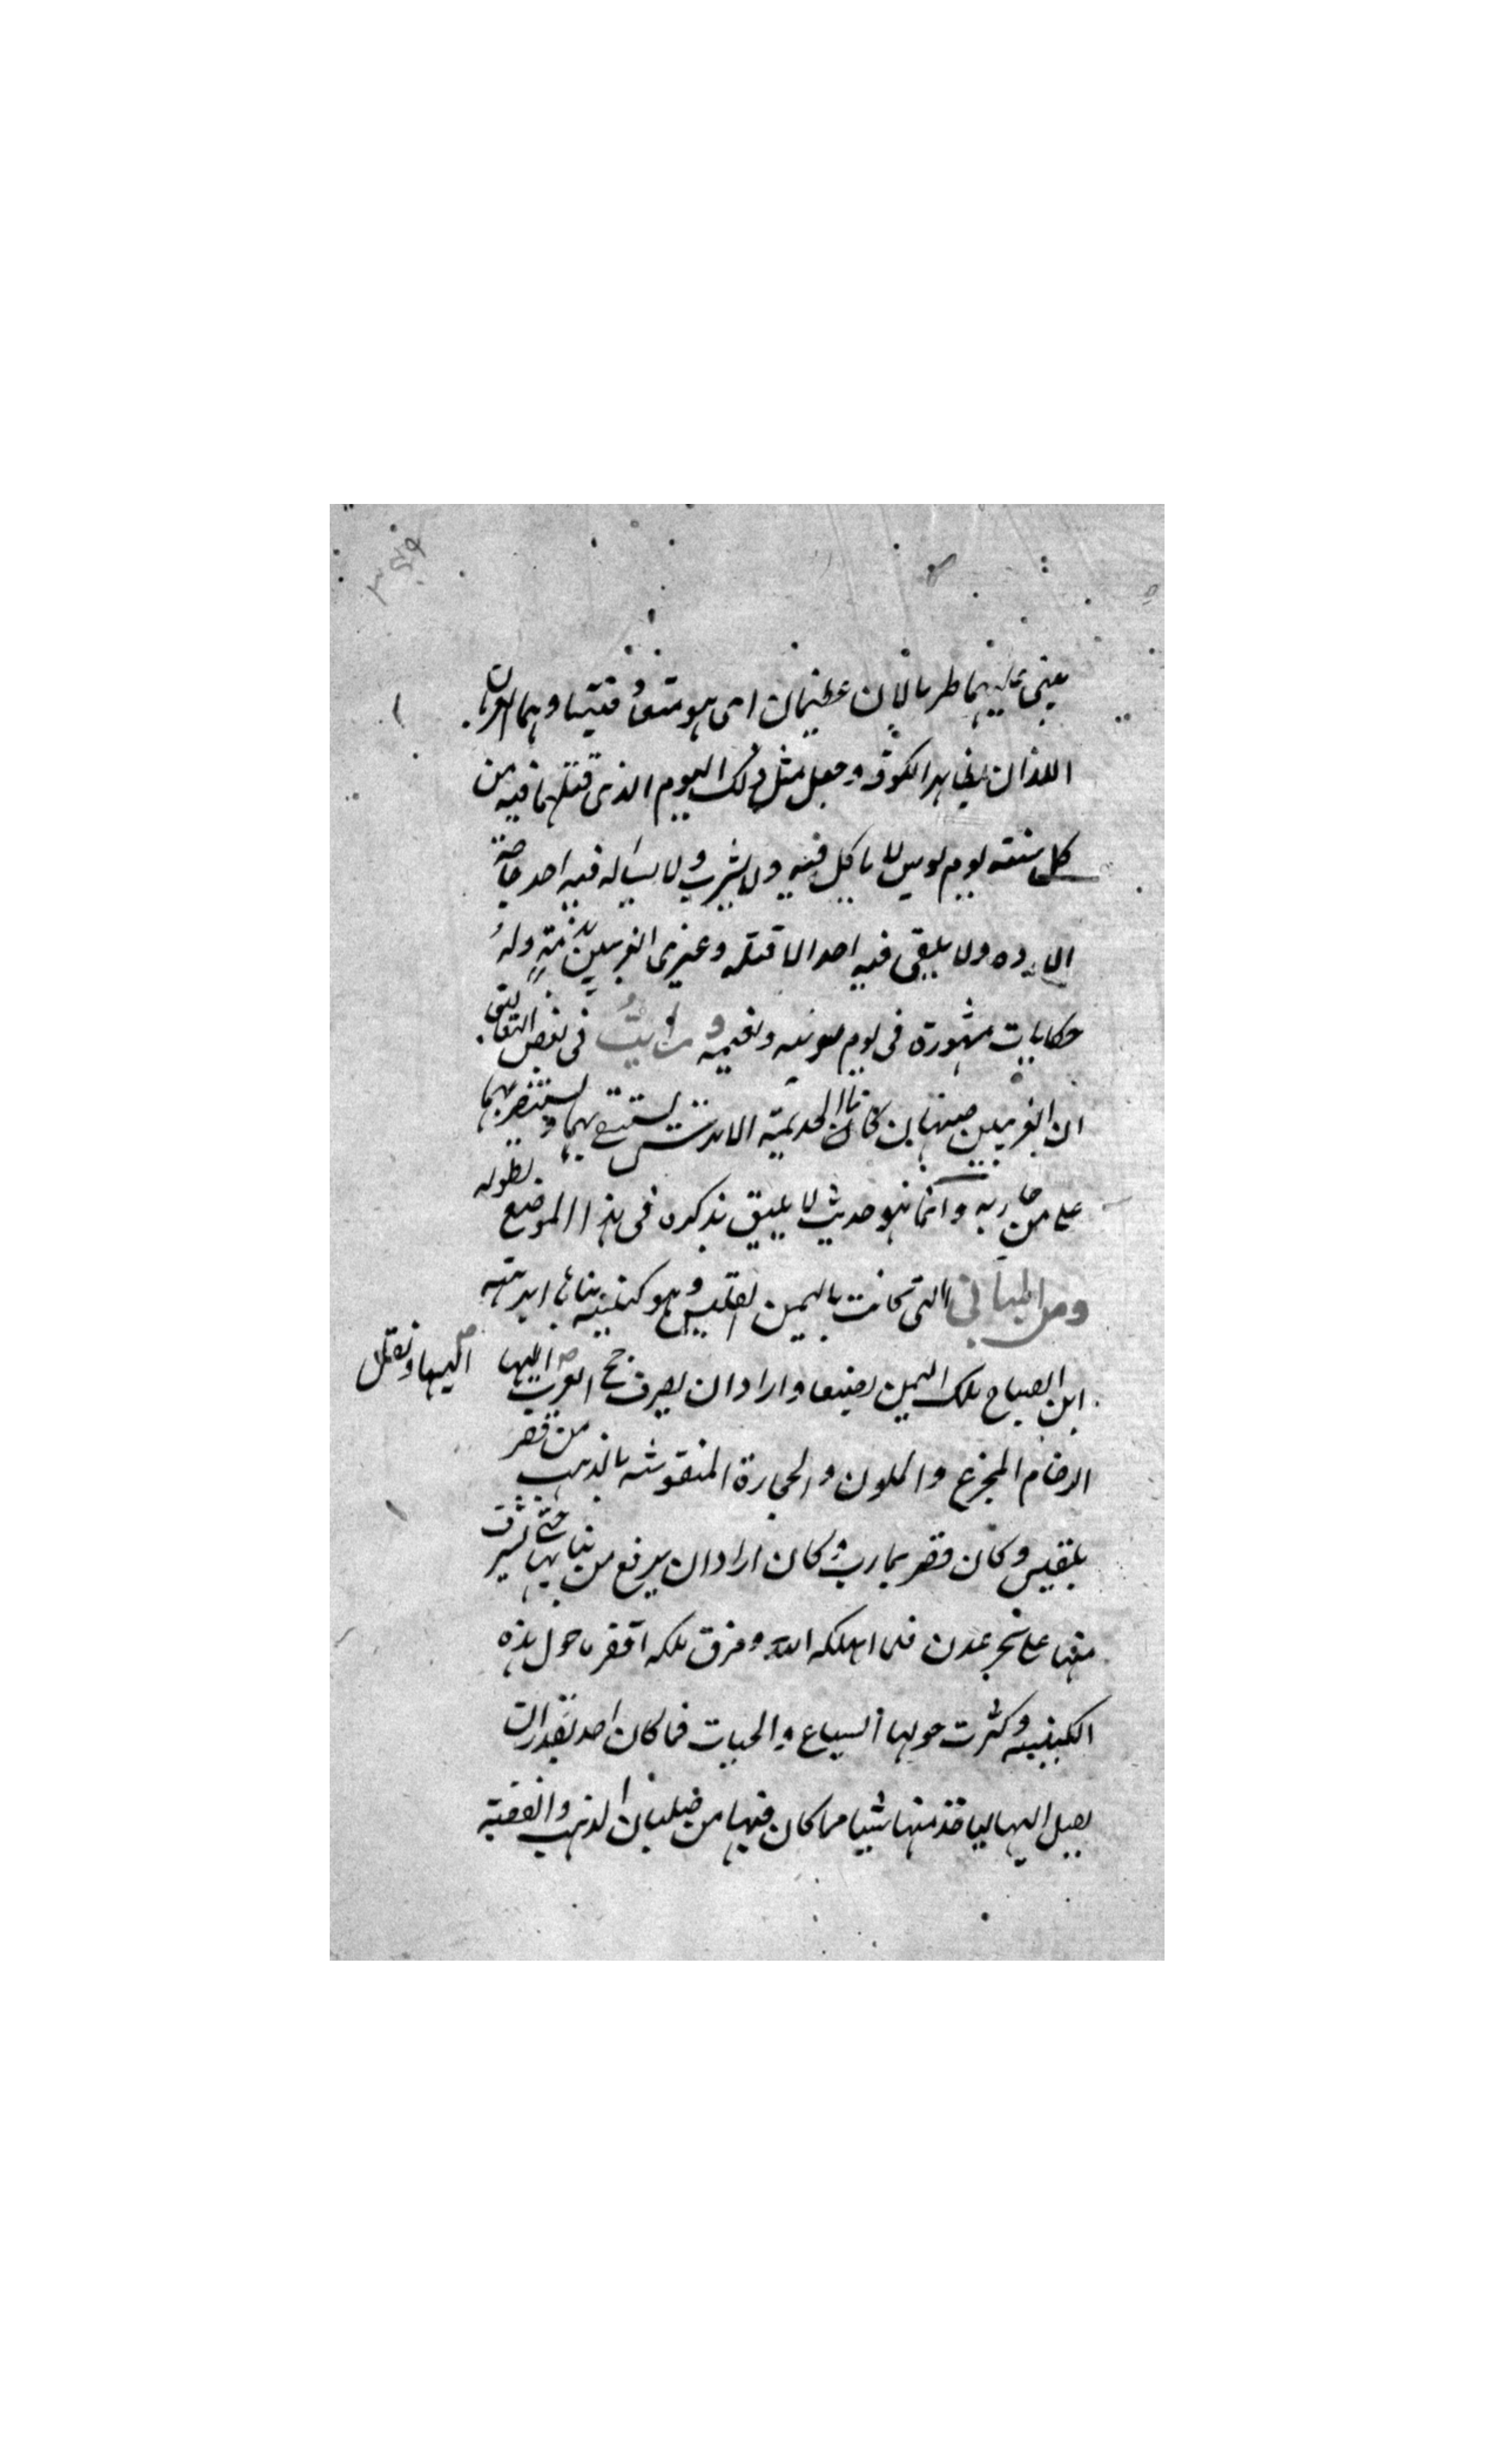 يعني عليهما طربالان عظيمان اي هو متعو فنيتا وهما الغريان
اللذان بظاهر الكوفة وجعل مثل ذلك اليوم الذي قتلهما فيه من
كل سنة يوم بوس لا ياكل فيه ولا يشرب ولا يساله فيه احد حاجة
الا رده ولا يلقي فيه احد الا قتله وغري الغريين بدمه وله
حكايات مشهورة في يوم بوسه ونعيمه ورايت في بعض التعاليق
ان الغريين صنمان كانا لجذيمة الابرش يستسقي بهما ويستنصر بهما
على من حاربه وانما هو حديث لا يليق بذكره في هذا الموضع لطوله
ومن المباني التي كانت باليمن القليس وهو كنيسة بناها ابرهة
ابن الصباح ملك اليمن بصنعا واراد ان يصرف حج العرب اليها
اليها ونقل
الرخام المجزع والملون والحجارة المنقوشة بالذهب من قصر
بلقيس وكان قصر بمارب وكان اراد ان يرفع من بنايها حتى يشرف
منها على بحر عدن فلما اهلكه الله ومزق ملكه اقفر ما حول هذه
الكنيسة وكثرت حولها السباع والحيات فما كان احد يقدر ان
يصل اليها لياخذ منها شيا مما كان فيها من صلبان الذهب والفضة